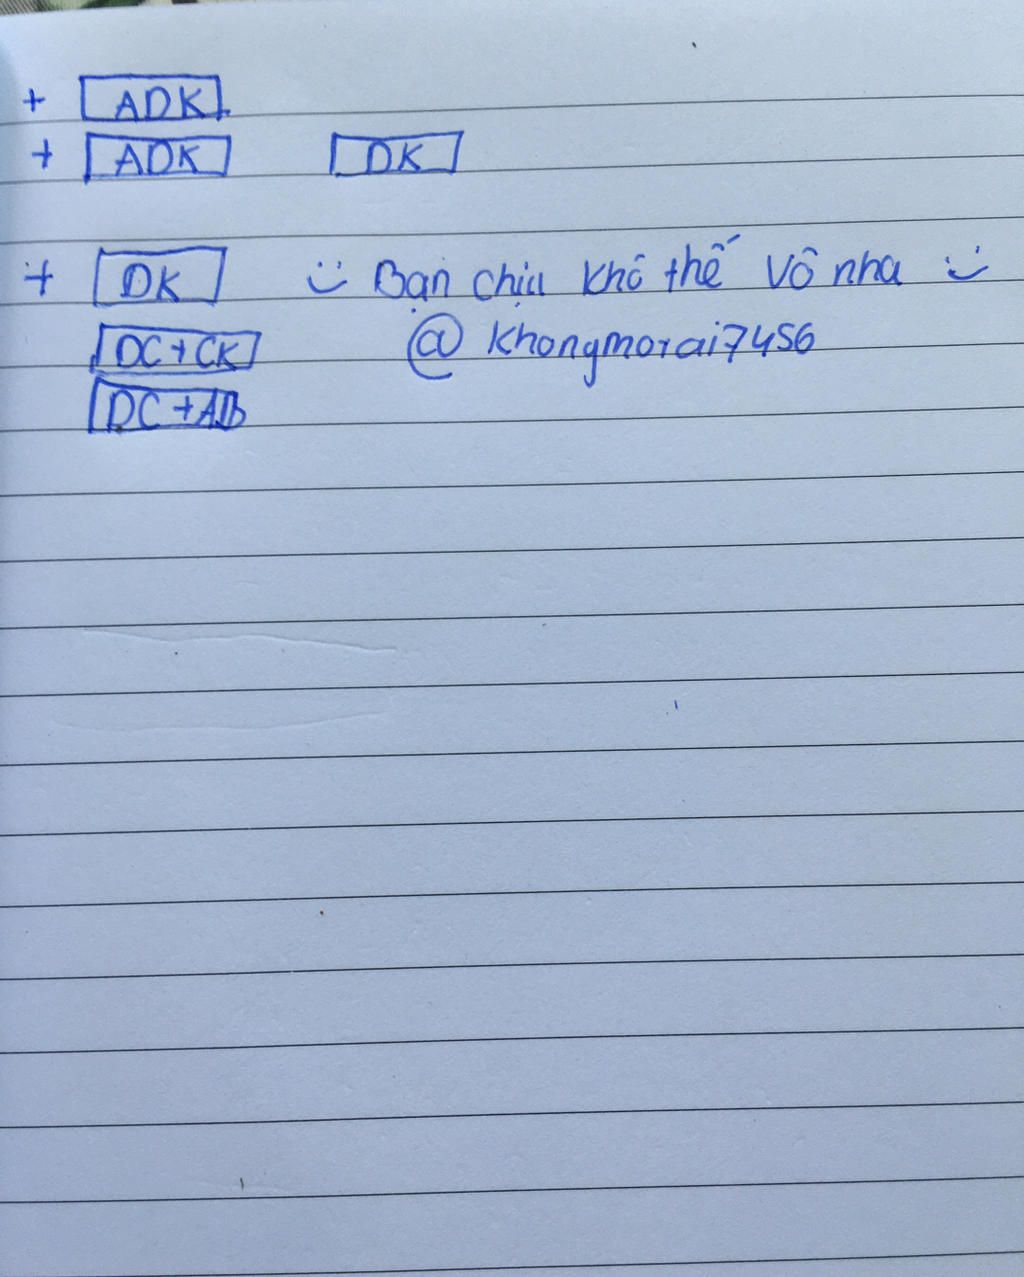 + ADK
+ ADK DK
+ DK Bạn chịu khó thế vô nha
DC+CK @khongmorai7456
DC+AB